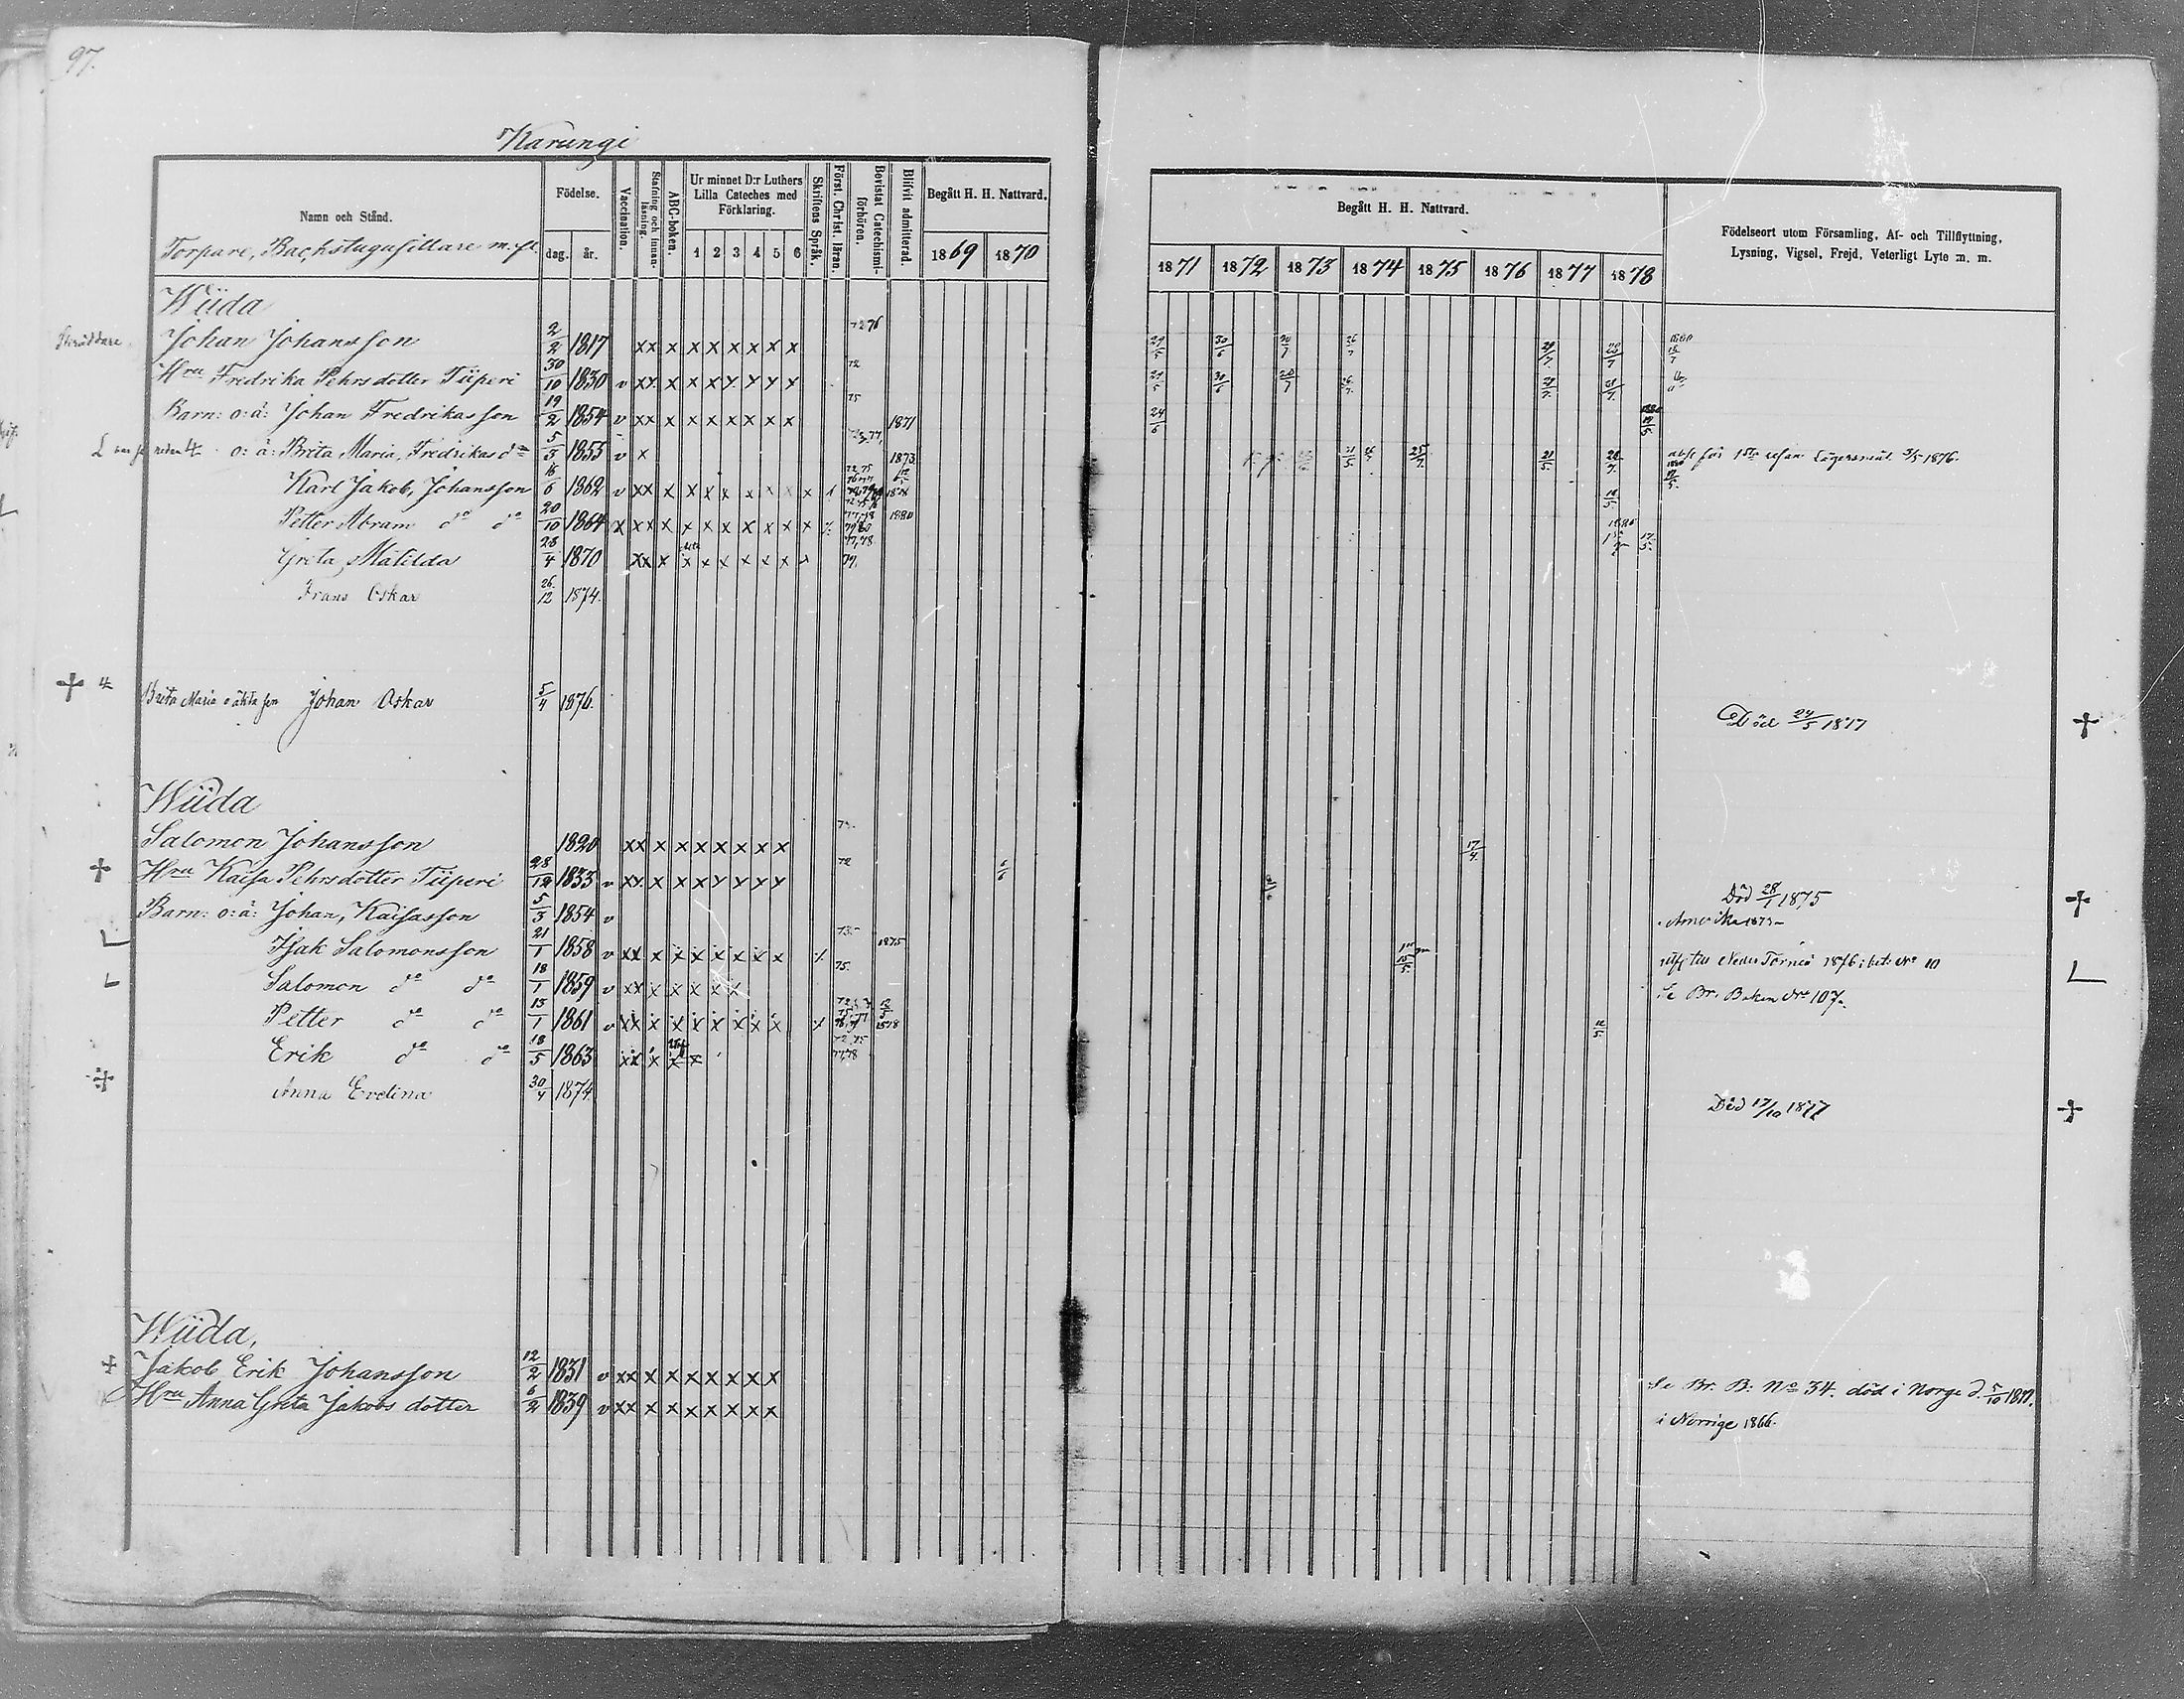 97.
Karungi
Namn och Stånd.
Torpare, Backstugusittare m. fl.
Födelse.
dag. år.
Vaccination.
Stafning och innan-läsning.
ABC-boken.
Ur minnet D:r Luthers Lilla Cateches med Förklaring.
1 2 3 4 5 6
Skriftens Språk.
Först. Christ. läran.
Bevistat Catechismi-förhören.
Blifvit admitterad.
Begått H. H. Nattvard.
1869 1870
Begått H. H. Nattvard.
1871 1872 1873 1874 1875 1876 1877 1878
Födelseort utom Församling, Af- och Tillflyttning,
Lysning, Vigsel, Frejd, Veterligt Lyte m. m.
Wiida
Johan Johansson 2/2 1817 xx x x x x x x x 29/5 30/6 20/7 26/7 29/7 28/7
Hru Fredrika Pehrsdotter Tiiperi 30/10 1830 v xx x x x y y y x 72 29/5 30/6 20/7 26/7 29/7 28/7
Barn: o: ä: Johan Fredrikasson 19/2 1854 v xx x x x x x x x 75 1871 24/6
o: ä: Brita Maria, Fredrikas dr 5/5 1855 v x 1873 21/5 25/7 21/5 28/7 3/5 1876.
Karl Jakob, Johansson 16/6 1862 v xx x x x x x x x x 1878 18/5
Petter Abram do do 20/10 1864 x xx x x x x x x x x 1880
Greta Matilda 28/4 1870 xx x x x x x x x 77,78 79.
Frans Oskar 26/12 1874.
Brita Maria oäkta son Johan Oskar 5/4 1876. Död 24/5 1877
Wiida
Salomon Johansson 1820 xx x x x x x x x 17/4
Hru Kaisa Pehrsdotter Tiiperi 28/12 1833 v xx x x x y y y y 72 6/6 Död 28/1 1875
Barn: o: ä: Johan, Kaisasson 5/5 1854 v Amerika 1873
Isak Salomonsson 21/1 1858 v xx x x x x x x x 1875 15/5 Neder Torneå 1876 No 10
Salomon do do 18/1 1859 v xx x x x x x 75. Se Br. Boken No 107.
Petter do do 15/1 1861 v xx x x x x x x x 1878 12/5
Erik do do 18/5 1863 xx x x x 72 75 77,78
Anna Evelina 30/4 1874. Död 17/10 1877
Wiida,
Jakob Erik Johansson 12/2 1831 v xx x x x x x x x Se Br. B: No 34. död i Norge d. 5/10 1877.
Hru Anna Greta Jakobs dotter 6/2 1839 v xx x x x x x x x i Norrige 1866.